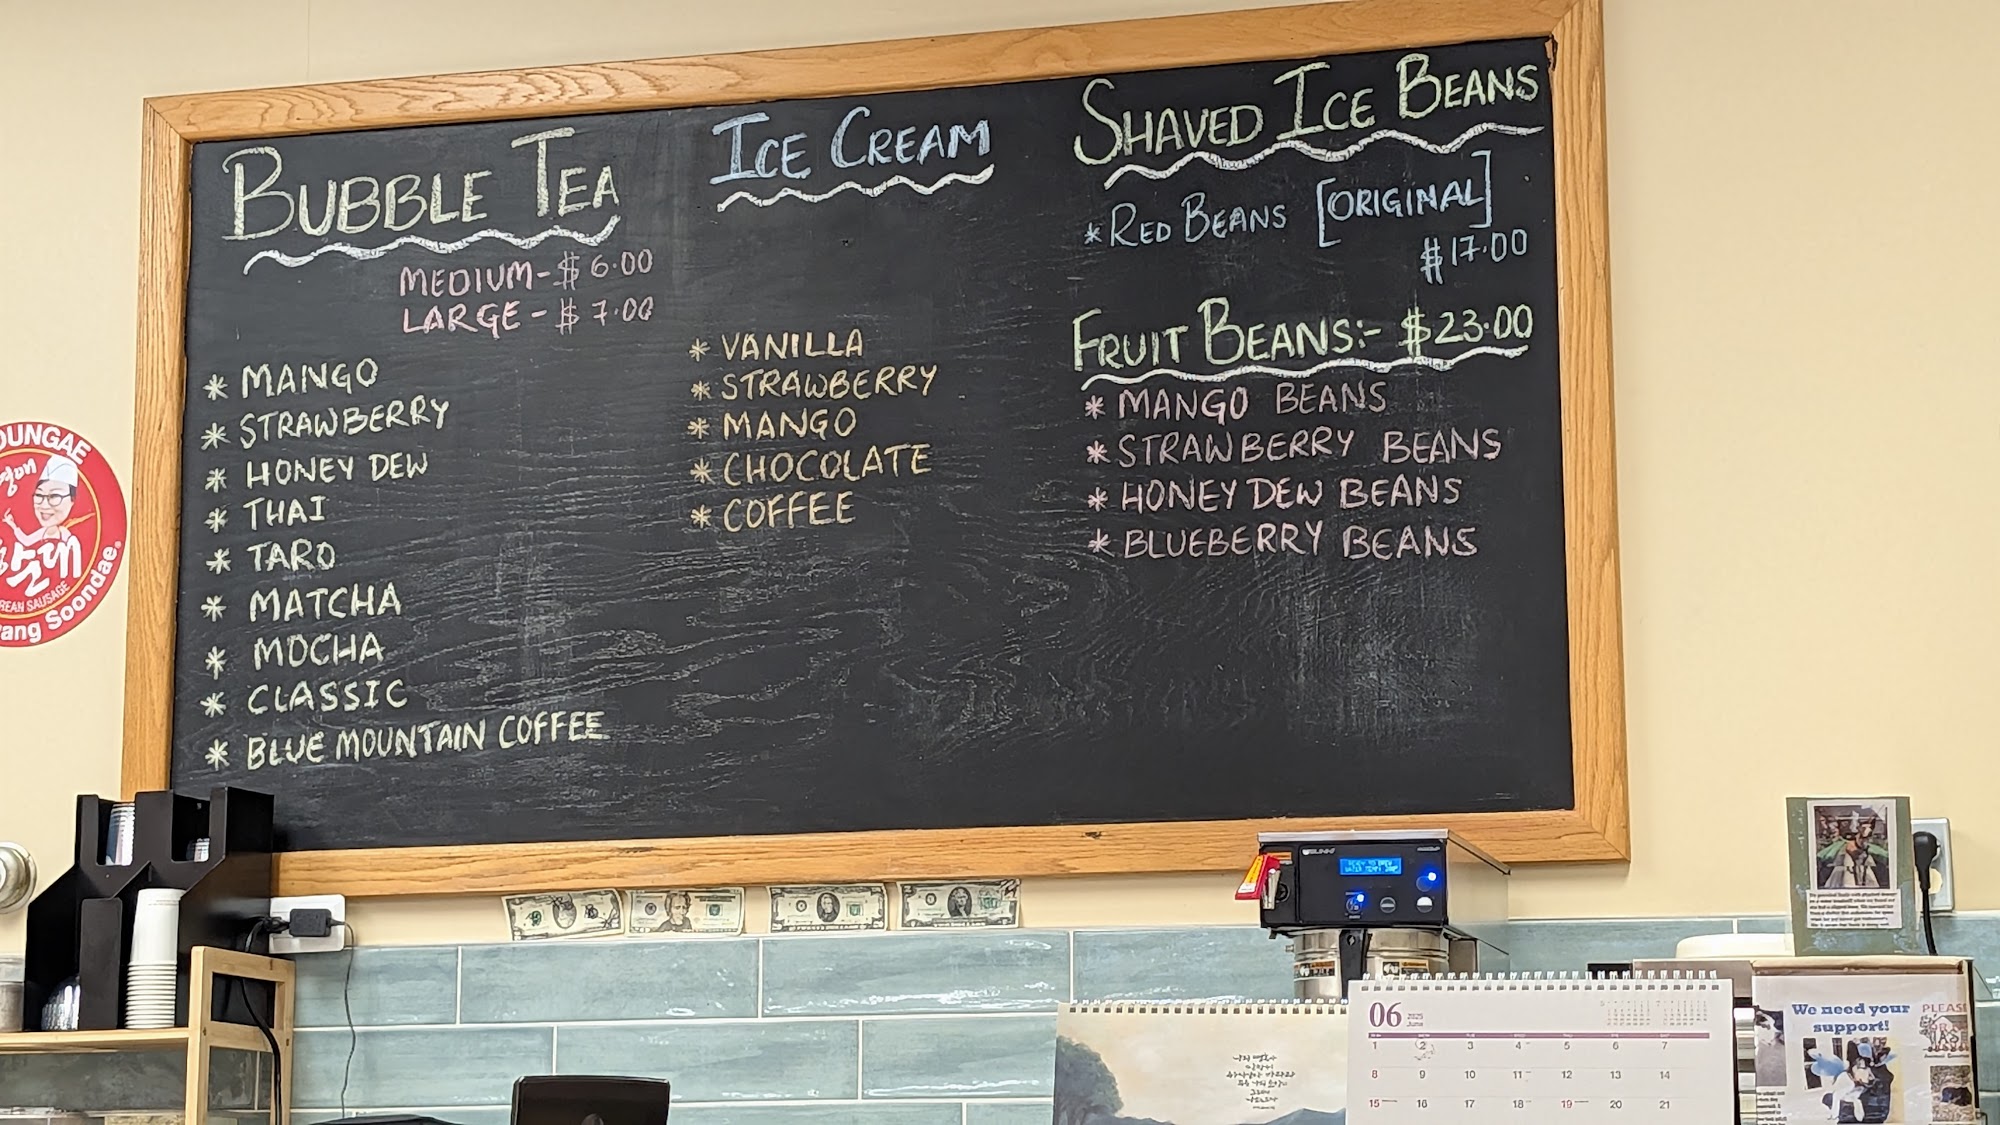 BUBBLE TEA
MEDIUM - $ 6.00
LARGE - $ 7.00
* MANGO
* STRAWBERRY
* HONEY DEW
* THAI
* TARO
* MATCHA
* MOCHA
* CLASSIC
* BLUE MOUNTAIN COFFEE
ICE CREAM
* VANILLA
* STRAWBERRY
* MANGO
* CHOCOLATE
* COFFEE
SHAVED ICE BEANS
* RED BEANS [ORIGINAL]
$17.00
FRUIT BEANS:- $23.00
* MANGO BEANS
* STRAWBERRY BEANS
* HONEY DEW BEANS
* BLUEBERRY BEANS
OUNGAE
순대
REAN SAUSAGE
ang Soondae
BUNN
READY TO BREW
06 2025
June
1 2 3 4 5 6 7
8 9 10 11 12 13 14
15 16 17 18 19 20 21
We need your
support!
PLEAS